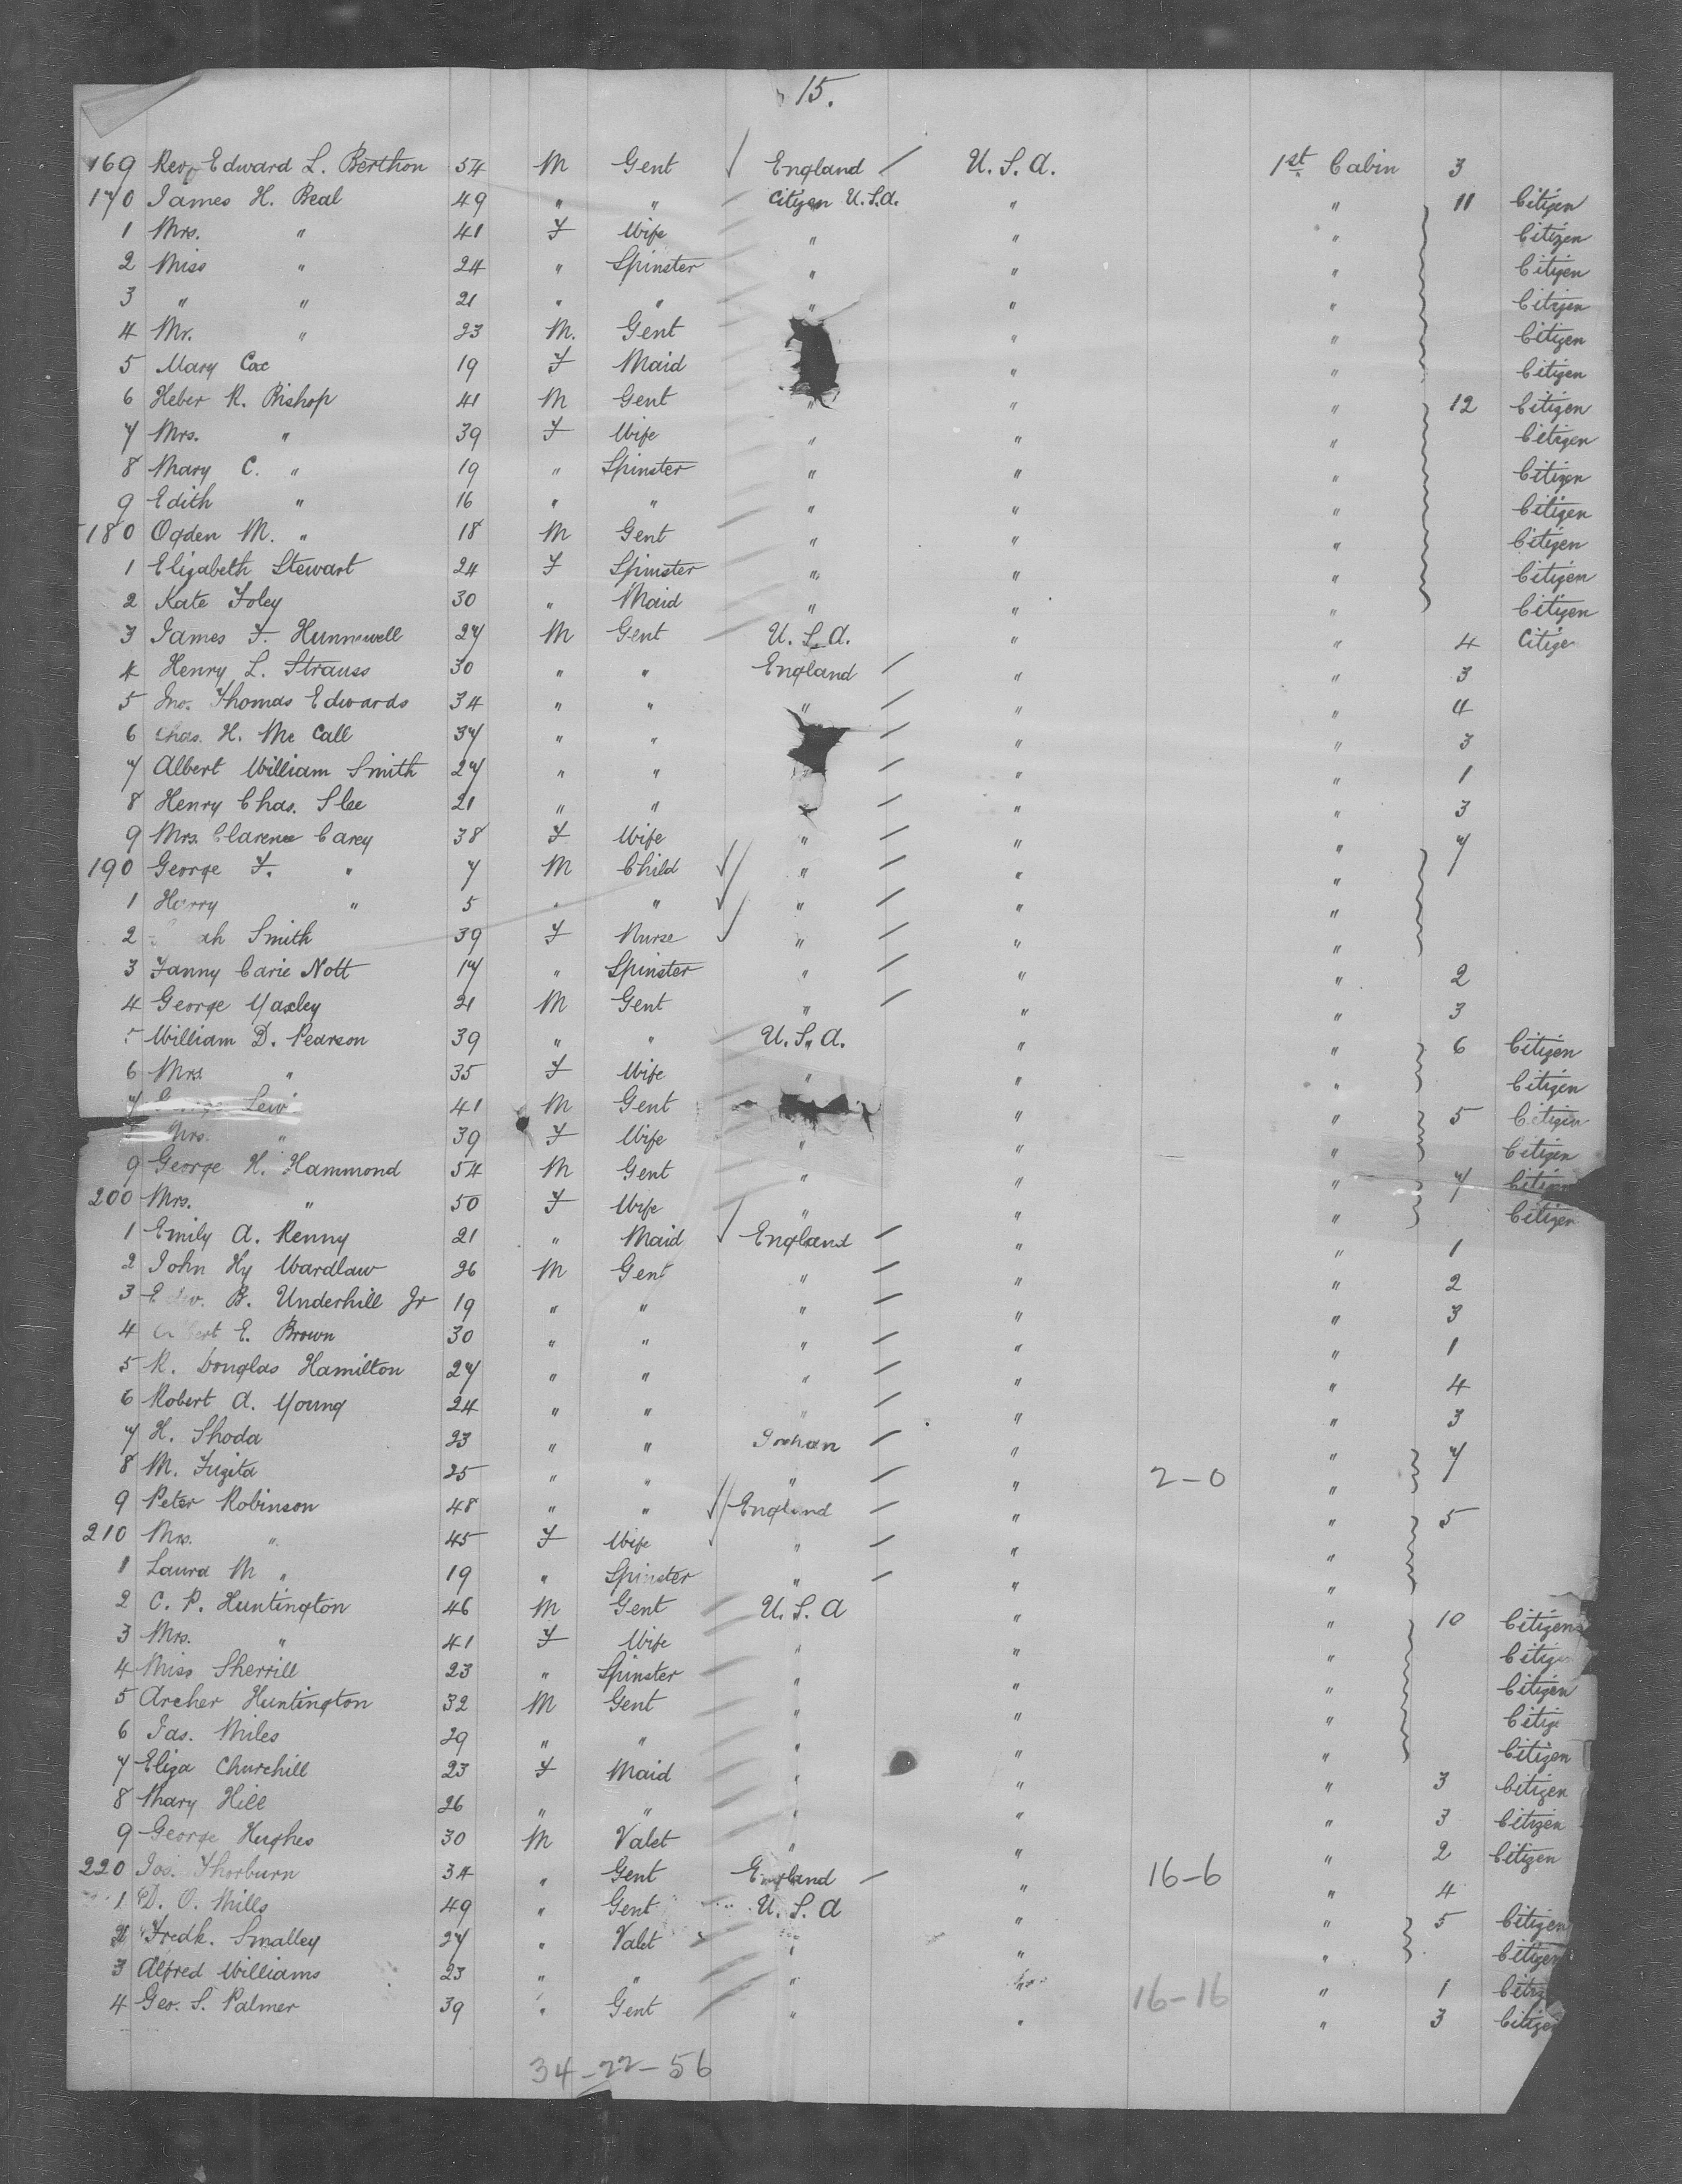 15.
169 Rev Edward L. Berthon 54 M Gent England U.S.A. 1st Cabin 3
170 James H. Beal 49 " " Citizen U.S.A. " " 11 Citizen
1 Mrs. " 41 F Wife " " " Citizen
2 Miss " 24 " Spinster " " " Citizen
3 " " 21 " " " " " Citizen
4 Mr. " 23 M. Gent " " Citizen
5 Mary Cox 19 F Maid " " Citizen
6 Heber R. Bishop 41 M Gent " " " 12 Citizen
7 Mrs. " 39 F Wife " " " Citizen
8 Mary C. " 19 " Spinster " " " Citizen
9 Edith " 16 " " " " " Citizen
180 Ogden M. " 18 M Gent " " " Citizen
1 Elizabeth Stewart 24 F Spinster " " " Citizen
2 Kate Foley 30 " Maid " " " Citizen
3 James F. Hunnewell 27 M Gent U.S.A. " " 4 Citize
4 Henry L. Strauss 30 " " England " " 3
5 Jno. Thomas Edwards 34 " " " " " 4
6 Chas. H. Mc Call 37 " " " " 3
7 Albert William Smith 27 " " " " 1
8 Henry Chas. Slee 21 " " " " " 3
9 Mrs. Clarence Carey 38 F Wife " " " 7
190 George F. " 7 M Child " " "
1 Harry " 5 " " " " "
2 ah Smith 39 F Nurse " " "
3 Fanny Carie Nott 17 " Spinster " " " 2
4 George Yaxley 21 M Gent " " " 3
5 William D. Pearson 39 " " U.S.A. " " 6 Citizen
6 Mrs. " 35 F Wife " " " Citizen
7 Lewi 41 M Gent " " 5 Citizen
Mrs. " 39 F Wife " " " Citizen
9 George H. Hammond 54 M Gent " " " 7 Citizen
200 Mrs. " 50 F Wife " " " Citizen
1 Emily A. Renny 21 " Maid England " " 1
2 John Hy Wardlaw 26 M Gent " " " 2
3 Edw. B. Underhill Jr 19 " " " " " 3
4 Albert E. Brown 30 " " " " " 1
5 R. Douglas Hamilton 27 " " " " " 4
6 Robert A. Young 24 " " " " " 3
7 H. Shoda 23 " " " " 7
8 M. Fugita 25 " " " " 2-0 "
9 Peter Robinson 48 " " England " " 5
210 Mrs. " 45 F Wife " " "
1 Laura M " 19 " Spinster " " "
2 C. P. Huntington 46 M Gent U.S.A " " 10 Citizen
3 Mrs. " 41 F Wife " " " Citizen
4 Miss Sherrill 23 " Spinster " " " Citizen
5 Archer Huntington 32 M Gent " " " Citi
6 Jas. Miles 29 " " " " " Citizen
7 Eliza Churchill 23 F Maid " " " 3 Citizen
8 Mary Hill 26 " " " " " 3 Citizen
9 George Hughes 30 M Valet " " " 2 Citizen
220 Jos. Thorburn 34 " Gent England " 16-6 " 4
1 D. O. Mills 49 " Gent U.S.A " " 5 Citizen
2 Fredk. Smalley 27 " Valet " " " Citizen
3 Alfred Williams 23 " " " " " 1 Citiz
4 Geo. S. Palmer 39 " Gent " " 16-16 " 3 Citizen
34-22-56